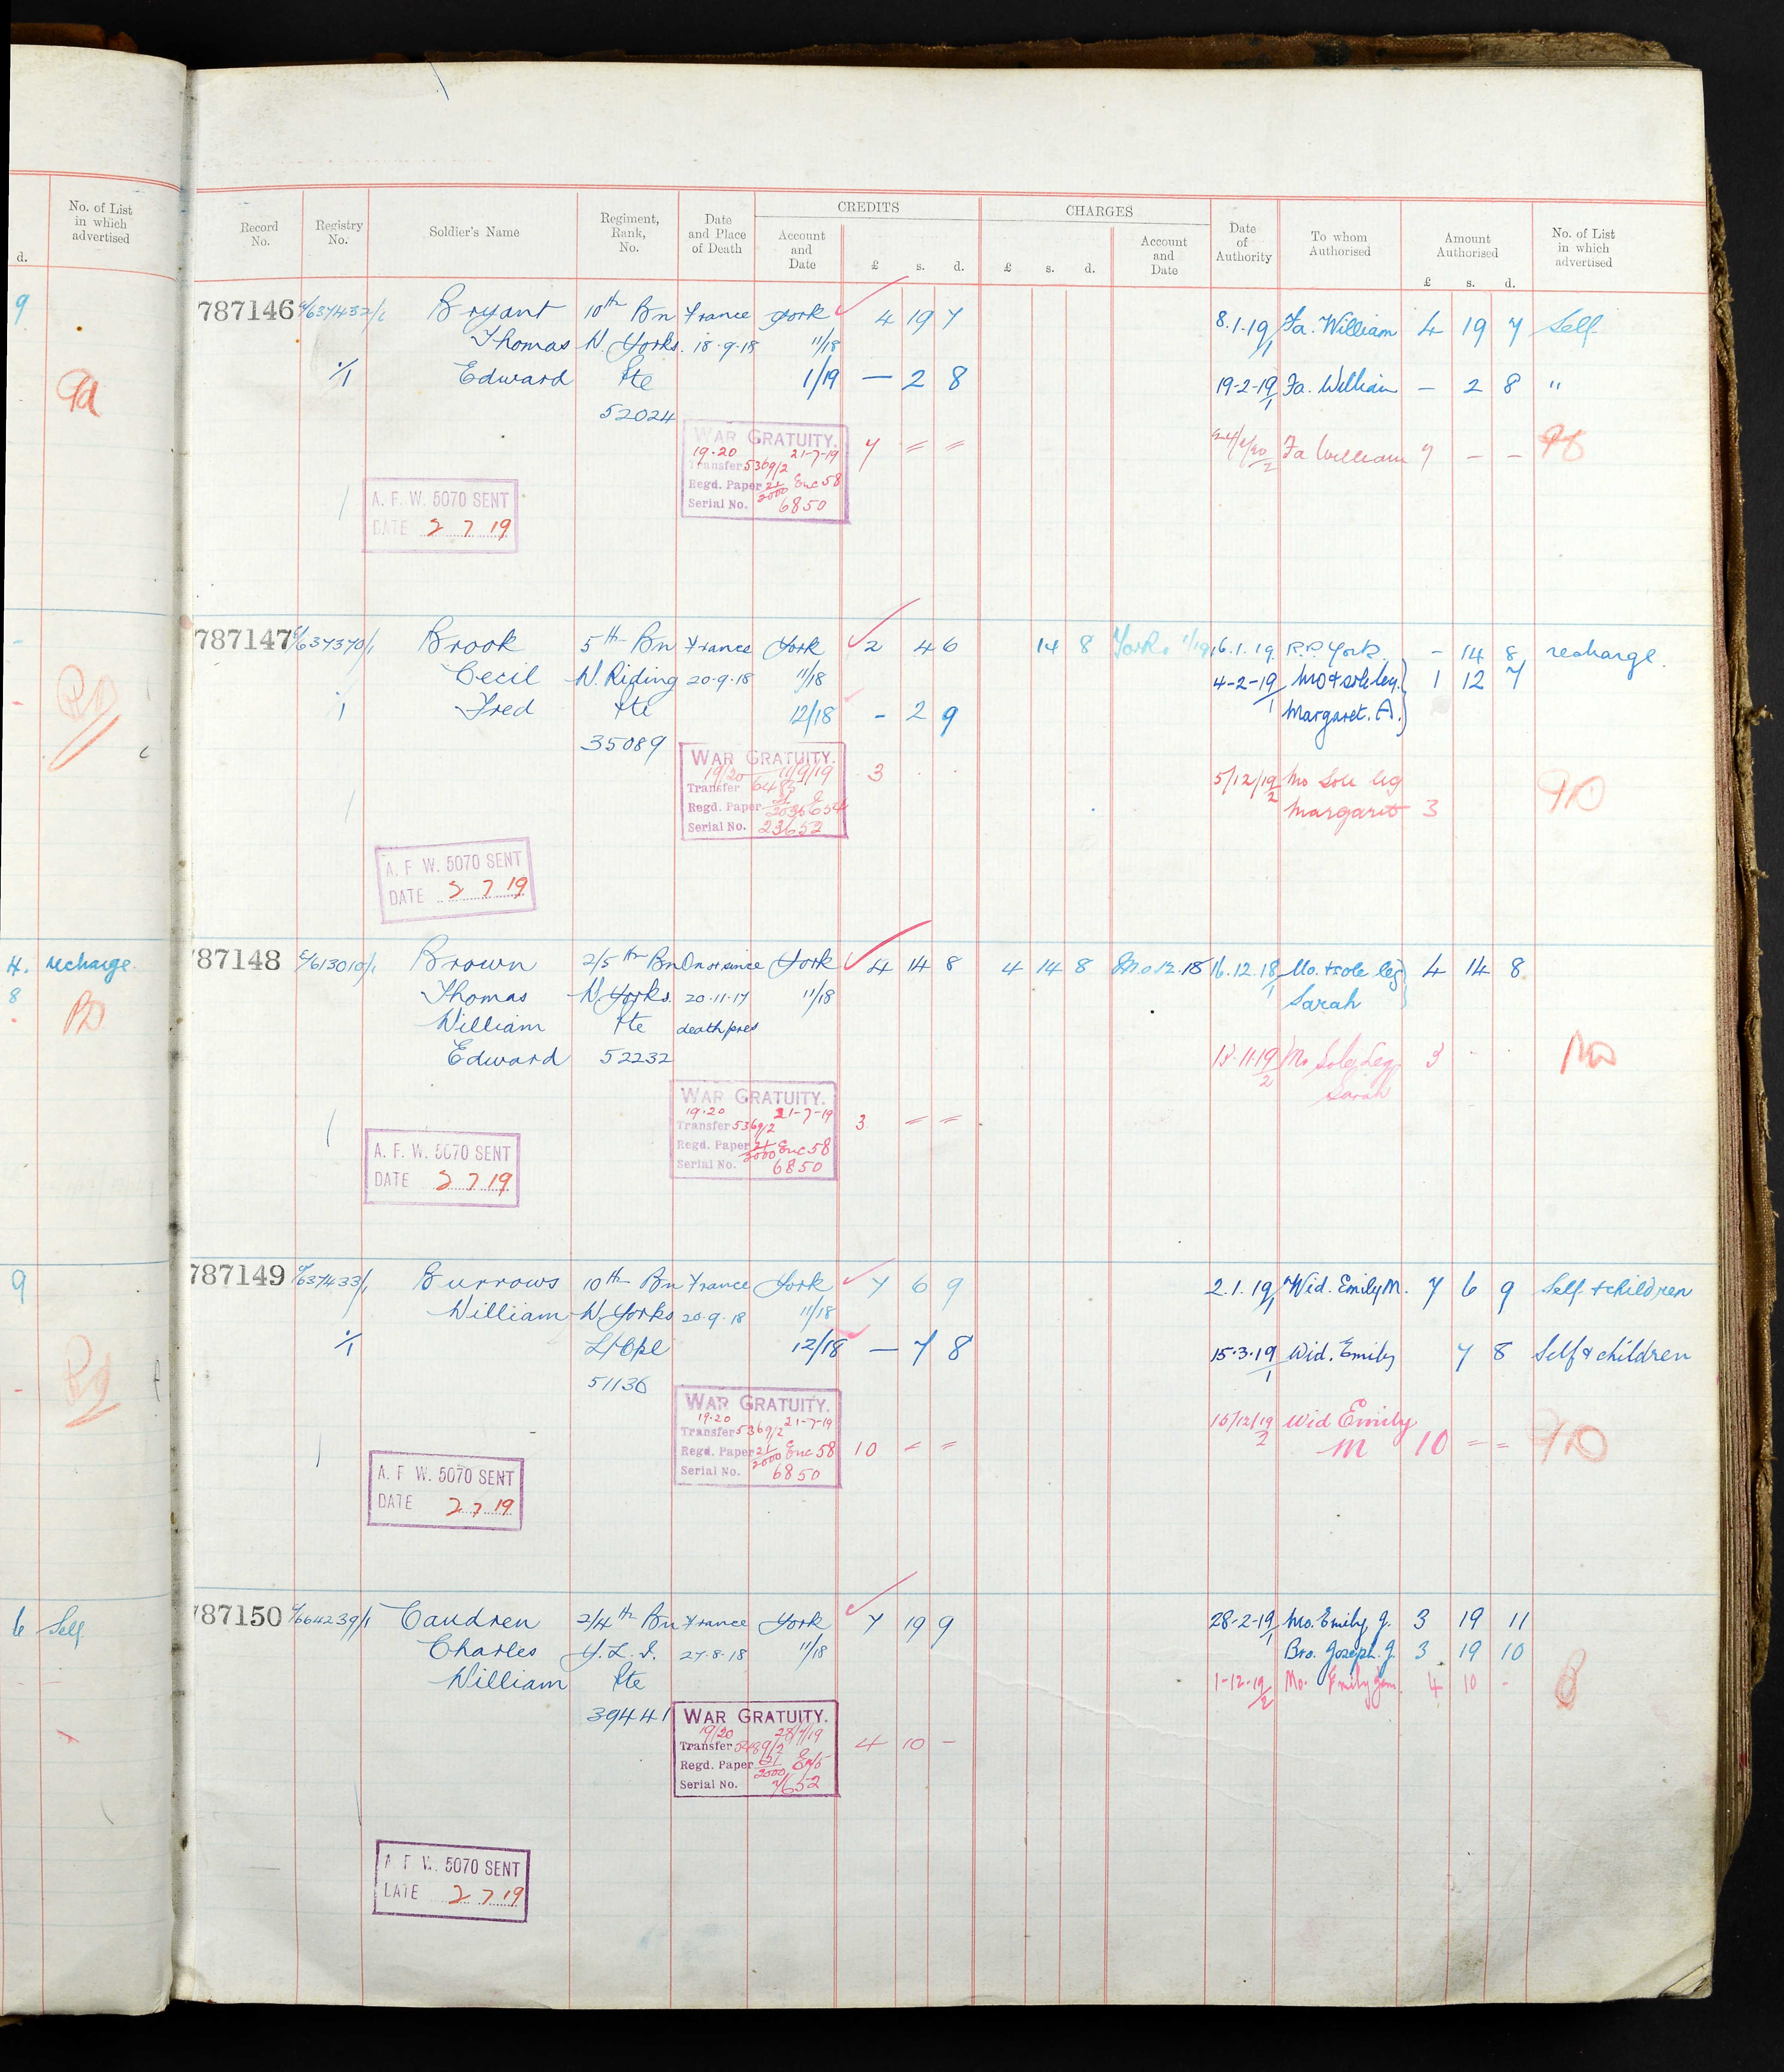 No. of List
in which
advertised
d.
9
9d
4. recharge
8
9
6 Self
CREDITS
CHARGES
Record
No.
Registry
No.
Soldier's Name
Regiment,
Rank,
No.
Date
and Place
of Death
Account
and
Date
£ s. d.
£ s. d.
Account
and
Date
Date
of
Authority
To whom
Authorised
Amount
Authorised
£ s. d.
No. of List
in which
advertised
787146 637432/1 Bryant 10th Bn France York 4 19 7 8.1.19 Fa. William 4 19 7 Self
Thomas W. Yorks. 18.9.18 11/18
Edward Pte 1/19 — 2 8 19-2-19 Fa. William — 2 8 "
52024
WAR GRATUITY. 7 = = Fa William 7 - -
19.20 21-7-19
Transfer 5369/2
Regd. Paper 21/2000 Enc 58
Serial No. 6850
A. F. W. 5070 SENT
DATE 2 7 19
787147 637370/1 Brook 5th Bn France York 2 4 6 14 8 York 1/19 16.1.19 R.P. York. - 14 8 recharge.
Cecil W. Riding 20.9.18 11/18 4-2-19 Mo & sole leg. 1 12 7
Fred Pte 12/18 - 2 9 Margaret. A.
35089
WAR GRATUITY. 3 5/12/19 Mo Sole leg
19/20 11/9/19 Margaret 3
Transfer
Regd. Paper
Serial No. 23652
A. F. W. 5070 SENT
DATE 2 7 19
787148 613010/1 Brown 2/5th Bn On or since York 4 14 8 4 14 8 12.18 16.12.18 Mo. & sole leg 4 14 8
Thomas W. Yorks. 20.11.17 11/18 Sarah
William Pte death pres
Edward 52232 Mo Sole Leg. 3
Sarah
WAR GRATUITY. 3 = =
19.20 21-7-19
Transfer 5369/2
Regd. Paper 21/2000 Enc 58
Serial No. 6850
A. F. W. 5070 SENT
DATE 2 7 19
787149 637433/1 Burrows 10th Bn France York 7 6 9 2.1.19 Wid. Emily M. 7 6 9 Self & children
William W. Yorks 20.9.18 11/18
L/Cpl 12/18 — 7 8 15.3.19 Wid. Emily 7 8 Self & children
51136
WAR GRATUITY. 10 = = Wid Emily
19.20 21-7-19 M 10 = =
Transfer 5369/2
Regd. Paper 21/2000 Enc 58
Serial No. 6850
A. F. W. 5070 SENT
DATE 2 7 19
787150 664239/1 Caudren 2/4th Bn France York 7 19 9 28-2-19 Mo. Emily J. 3 19 11
Charles Y. L. I. 27.8.18 11/18 Bro. Joseph. J. 3 19 10
William Pte 1-12-19 Mo. Emily Jam. 4 10 -
39441
WAR GRATUITY. 4 10 -
19/20 28/7/19
Transfer 5489/2
Regd. Paper 21/2000
Serial No. 7652
A. F. W. 5070 SENT
DATE 2 7 19